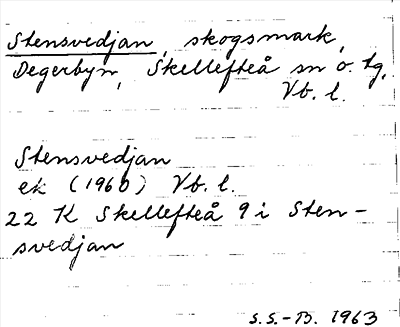 Stensvedjan, skogsmark,
Degerbyn, Skellefteå sn o. tg,
Vb. l.
Stensvedjan
ek (1960) Vb. l.
22 K Skellefteå 9 i Sten-
svedjan
S.S.-B. 1963